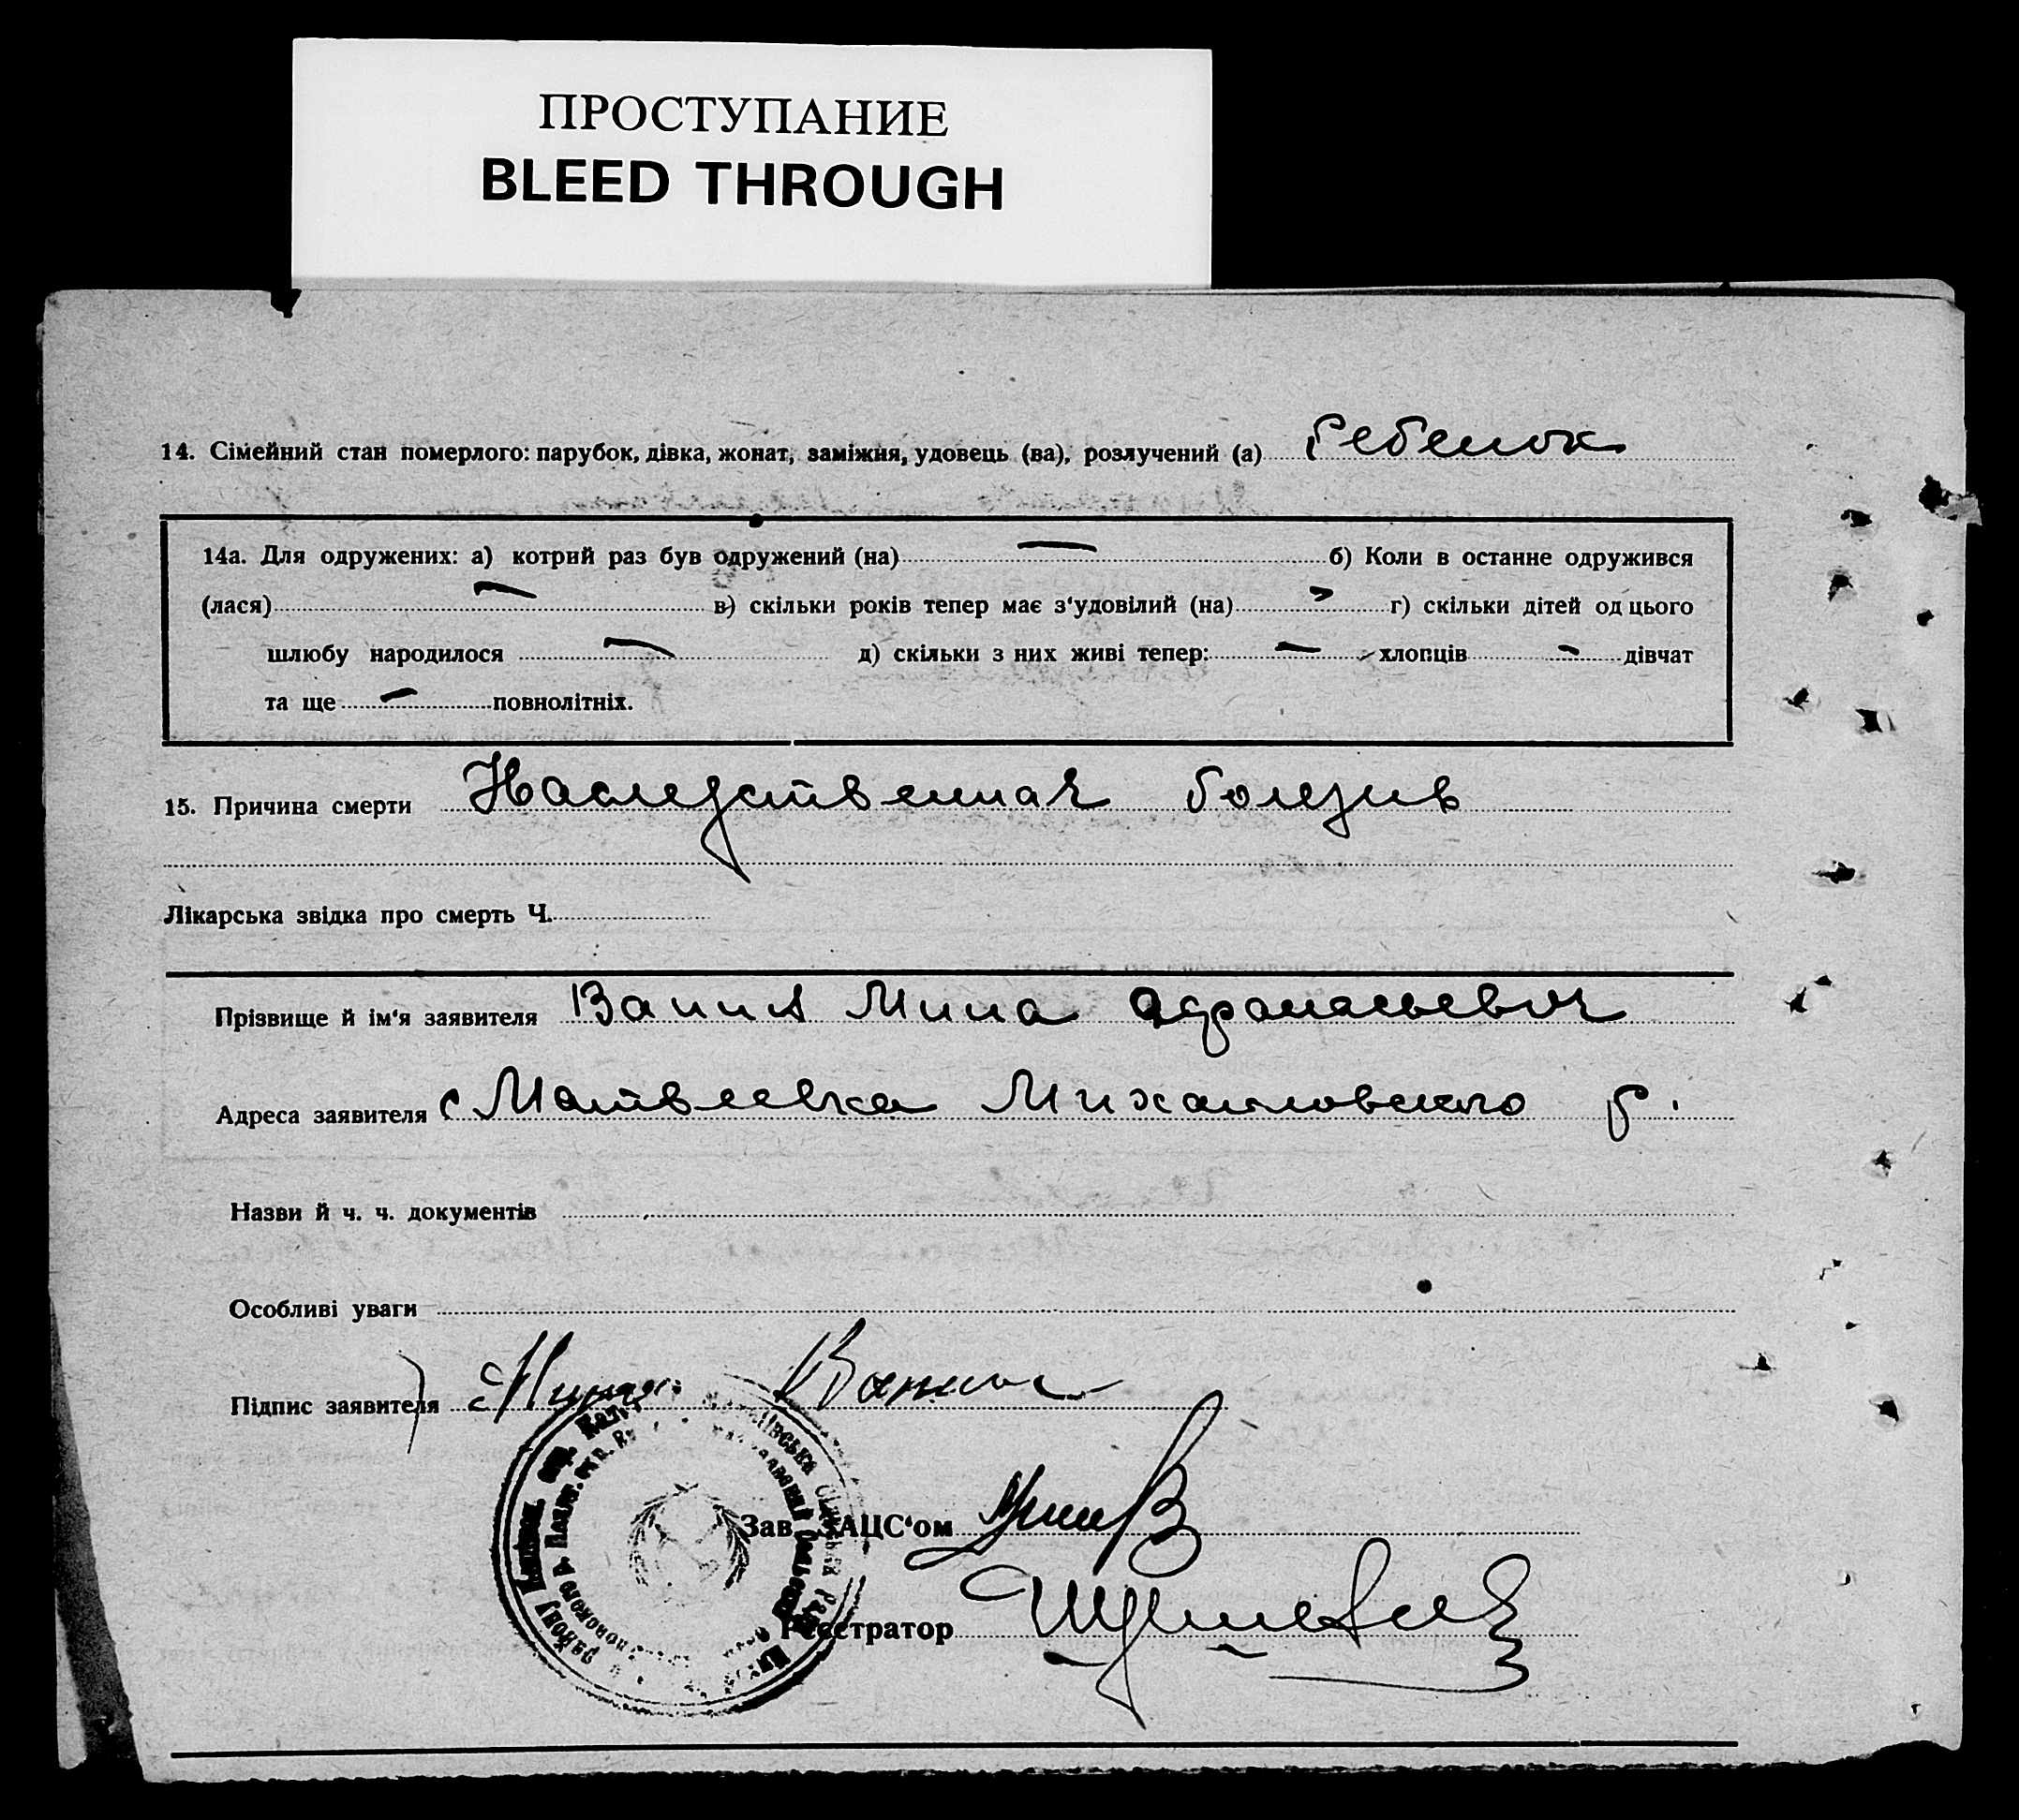 ПРОСТУПАНИЕ
BLEED THROUGH
14. Сімейний стан померлого: парубок, дівка, жонат, заміжня, удовець (ва), розлучений (а) Ребенок
14а. Для одружених: а) котрий раз був одружений (на) — б) Коли в останне одружився
(лася) — в) скільки років тепер має з‘удовілий (на) — г) скільки дітей од цього
шлюбу народилося — д) скільки з них живі тепер: — хлопців — дівчат
та ще — повнолітніх.
15. Причина смерти Наследственная болезнь
Лікарська звідка про смерть Ч.
Прізвище й ім‘я заявителя Ванин Мина Афанасьевич
Адреса заявителя с Матвеевка Михайловского р.
Назви й ч. ч. документів
Особливі уваги
Підпис заявителя Мина Ванин
Зав. ЗАЦС‘ом
Реєстратор